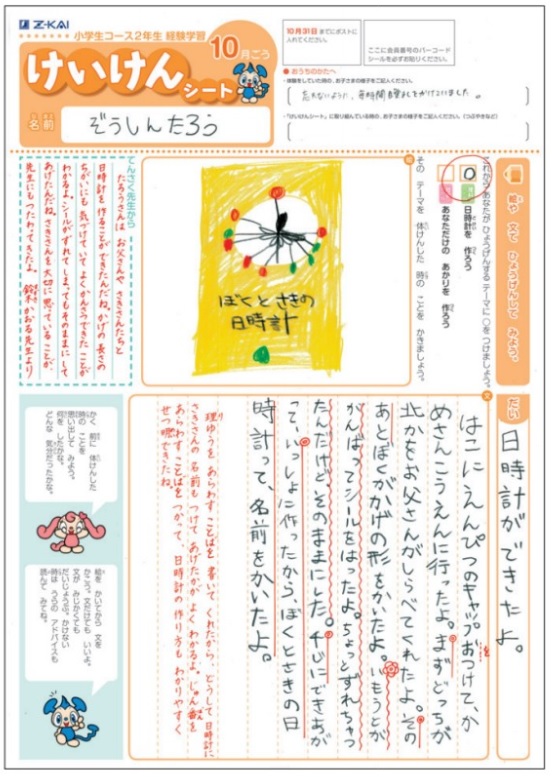 Z-KAI
小学生コース2年生 経験学習
10月ごう
けいけんシート
名前
ぞうしんたろう
10月31日までにポストに
入れてください。
ここに会員番号のバーコード
シールを必ずお貼りください。
● おうちのかたへ
・体験をしていた時の、お子さまの様子をご記入ください。
忘れないように、毎時間目覚ましをかけていました。
・「けいけんシート」に取り組んでいる時の、お子さまの様子をご記入ください。(つぶやきなど)
絵や 文で ひょうげんして みよう。
これから あなたが ひょうげんする テーマに ○を つけましょう。
○
日時計を 作ろう
あなただけの あかりを 作ろう
その テーマを 体けんした 時の ことを かきましょう。
絵
ぼくとさきの
日時計
てんさく先生から
たろうさんは お父さんや さきさんたちと
日時計を 作ることが できたんだね。かげの 長さの
ちがいにも 気づけていて よくかんさつできた ことが
わかるよ。シールがずれてしまっても そのままにして
あげたんだね。さきさんを 大切に 思っている ことが
先生にも つたわってきたよ。 鈴木かおる先生より
だい
日時計ができたよ。
文
はこにえんぴつのキャップおつけて、か
を
めさんこうえんに行ったよ。まずどっちが
北かをお父さんがしらべてくれたよ。その
あとぼくがかげの形をかいたよ。いもうとが
がんばってシールをはったよ。ちょっとずれちゃっ
たんだけど、そのままにした。4じにできあが
って、いっしょに作ったから、ぼくとさきの日
時計って、名前をかいたよ。
理ゆうを あらわす ことばを 書いて くれたから、どうして 日時計に
さきさんの 名前も つけて あげたかが よく わかるよ。じゅん番を
あらわす ことばを つかって 日時計の 作り方も わかりやすく
せつ明できたね。
かく 前に 体けんした
時の ことを
思い出して みよう。
何を したかな。
どんな 気分だったかな。
絵を かいてから 文を
かこう。文だけでも いいよ。
文が みじかくても
だいじょうぶ。かけない
時は うらの アドバイスも
読んで みてね。